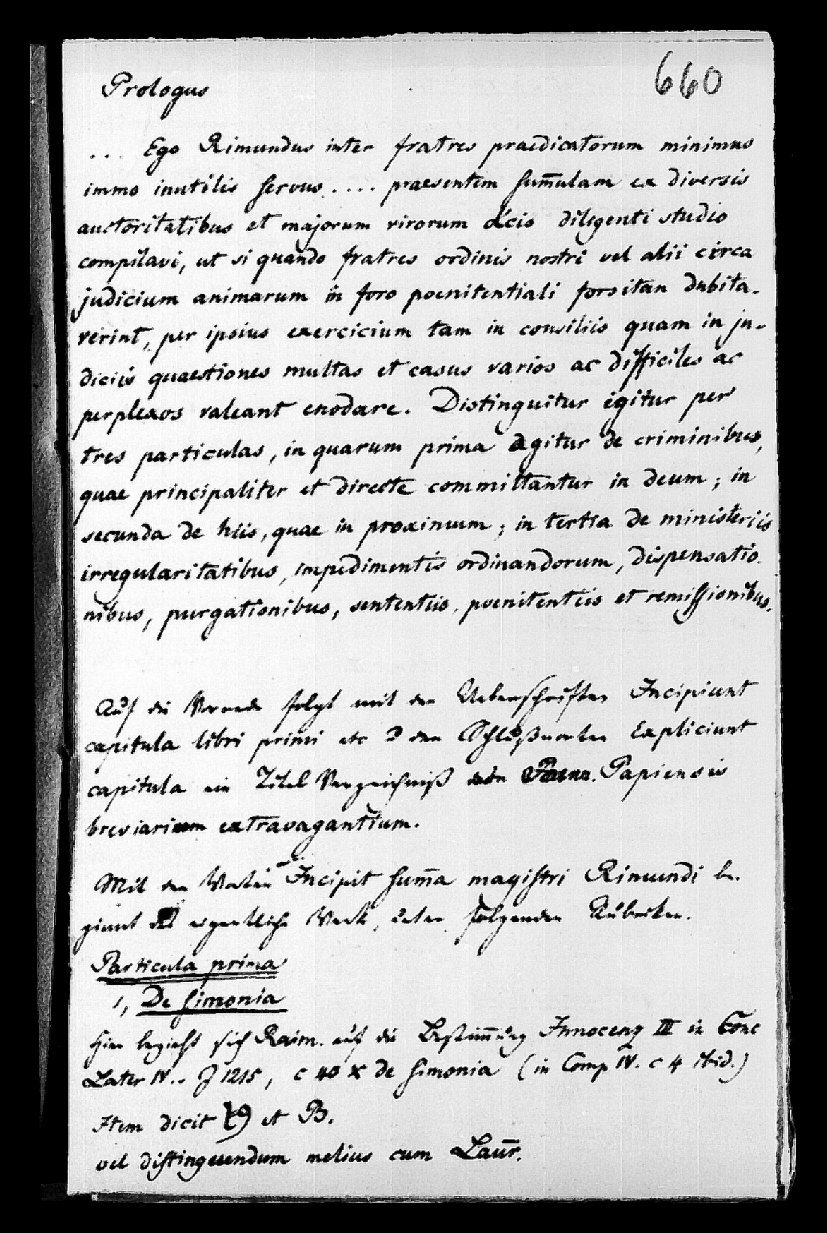 660
Prologus
... Ego Rimundus inter fratres praedicatorum minimus
immo inutilis servus .... praesentem sum̄ulam ex diversis
auctoritatibus et majorum virorum diligenti studio
compilavi, ut si quando fratres ordinis nostri vel alii circa
judicium animarum in foro poenitentiali forsitan dubita-
verint, per ipsius exercicium tam in consiliis quam in ju-
diciis quaestiones multas et casus varios ac difficiles ac
perplexos valeant enodare. Distinguitur igitur per
tres particulas, in quarum prima agitur de criminibus,
quae principaliter et directe committantur in deum; in
secunda de hiis, quae in proximum; in tertia de ministeriis
irregularitatibus, impedimentis ordinandorum, dispensatio-
nibus, purgationibus, sententiis, poenitentiis et remissionibus.
Auf die Vorrede folgt mit den Ueberschriften Incipiunt
capitula libri primi etc & den Schlußworten Expliciunt
capitula ein Titel Verzeichniß Papiensis
breviarium extravagantium.
Mit den Worten Incipit sum̄a magistri Rimundi be-
ginnt eigentliche Werk, folgenden Rubriken.
Particula prima
1, De simonia
Hier bezieht sich Raim. auf die Bestim̄ung Innocenz III in Conc
Later IV. J 1215, c 40 X de simonia (in Comp IV. c 4 ibid.)
Item dicit et B.
vel distinguendum melius cum Laur̄.